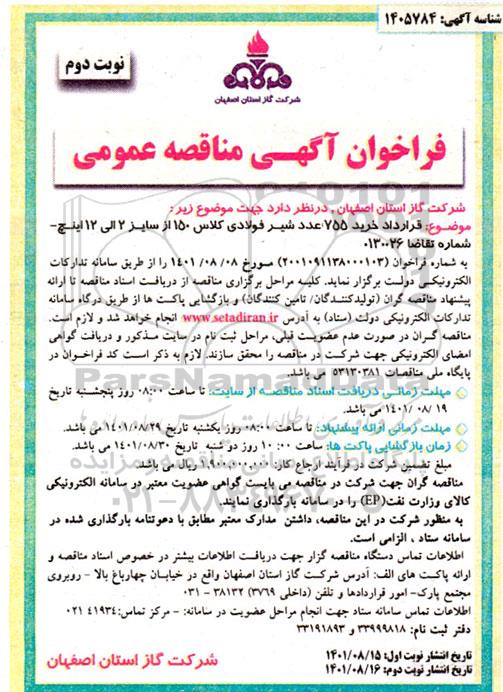 شناسه آگهی: ۱۴۰۵۷۸۴
نوبت دوم
شرکت گاز استان اصفهان
فراخوان آگهـی مناقصه عمومی
شرکت گاز استان اصفهان , درنظر دارد جهت موضوع زیر :
موضـوع: قرارداد خرید ۷۵۵ عدد شیـر فولادی کلاس ۱۵۰ از سایـز ۲ الی ۱۲ اینـچ-
شماره تقاضا ۰۱۳۰۰۳۶
به شماره فراخوان (۲۰۰۱۰۹۱۱۳۸۰۰۰۱۰۳) مـورخ ۰۸/ ۰۸/ ۱۴۰۱ را از طریق سامانه تدارکات
الکترونیکـی دولـت برگزار نماید. کلیـه مراحل برگزاری مناقصه از دریافـت اسناد مناقصـه تا ارائه
پیشنهاد مناقصه گران (تولیدکننـدگان/ تامین کنندگان) و بازگشایی پاکـت ها از طریق درگاه سامانه
تدارکات الکترونیکی دولت (ستاد) به آدرس www.setadiran.ir انجام خواهد شد و لازم است.
مناقصه گـران در صورت عدم عضویـت قبلی، مراحل ثبت نام در سایـت مـذکور و دریافت گواهی
امضای الکترونیکی جهت شرکـت در مناقصه را محقق سازند. لازم به ذکر است کد فراخـوان در
پایگاه ملی مناقصات ۵۳۱۲۰۳۸۱ می باشد.
مهلت زمانـی دریافت اسناد مناقصـه از سایت: تا ساعت ۰۸:۰۰ روز پنجشنبه تاریخ
۱۴۰۱/۰۸/۱۹ می باشد.
مهلت زمانی ارائه پیشنهاد: تا ساعت ۰۸:۰۰ روز یکشنبه تاریخ ۱۴۰۱/۰۸/۲۹ می باشد.
زمان بازگشایی پاکت ها: ساعت ۱۰:۰۰ روز دو شنبه تاریخ ۱۴۰۱/۰۸/۳۰ می باشد.
مبلغ تضمین شرکت در فرآیند ارجاع کار: ۱.۹۰۰.۰۰۰.۰۰۰ ریال می باشد.
مناقصه گران جهت شرکت در مناقصه می بایست گواهی عضویت معتبر در سامانه الکترونیکی
کالای وزارت نفت(EP) را در سامانه بارگذاری نمایند.
به منظور شرکت در این مناقصه، داشتن مدارک معتبر مطابق با دعوتنامه بارگذاری شده در
سامانه ستاد ، الزامی است.
اطلاعات تماس دستگاه مناقصه گزار جهت دریافـت اطلاعات بیشتر در خصوص اسناد مناقصه و
ارائه پاکت های الف: آدرس شرکت گاز استان اصفهان واقع در خیابـان چهارباغ بالا - روبروی
مجتمع پارک- امور قراردادها و تلفن (داخلی ۳۷۶۹) ۳۸۱۳۲ - ۰۳۱
اطلاعات تماس سامانه ستاد جهت انجام مراحل عضویت در سامانه: - مرکز تماس: ۴۱۹۳۴ ۰۲۱
دفتر ثبت نام: ۳۳۹۹۹۸۱۸ و ۳۳۱۹۱۸۹۳
تاریخ انتشار نوبت اول: ۱۴۰۱/۰۸/۱۵
تاریخ انتشار نوبت دوم: ۱۴۰۱/۰۸/۱۶
شرکت گاز استان اصفهان
ParsNamadData